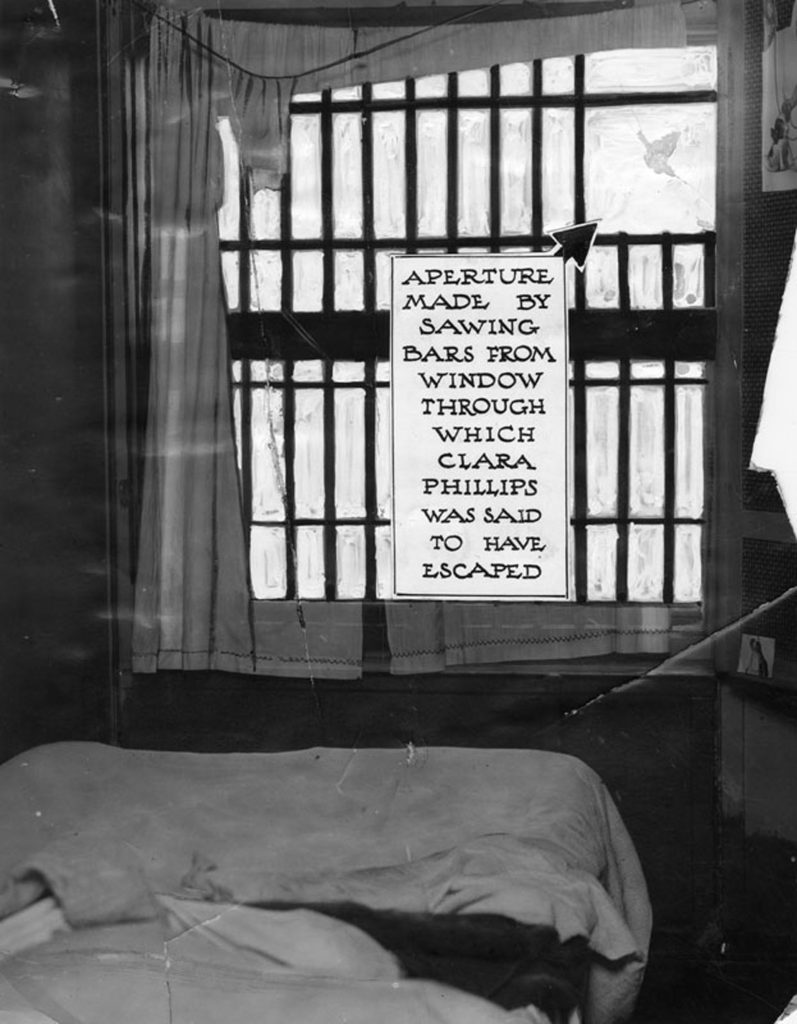 APERTURE
MADE BY
SAWING
BARS FROM
WINDOW
THROUGH
WHICH
CLARA
PHILLIPS
WAS SAID
TO HAVE
ESCAPED